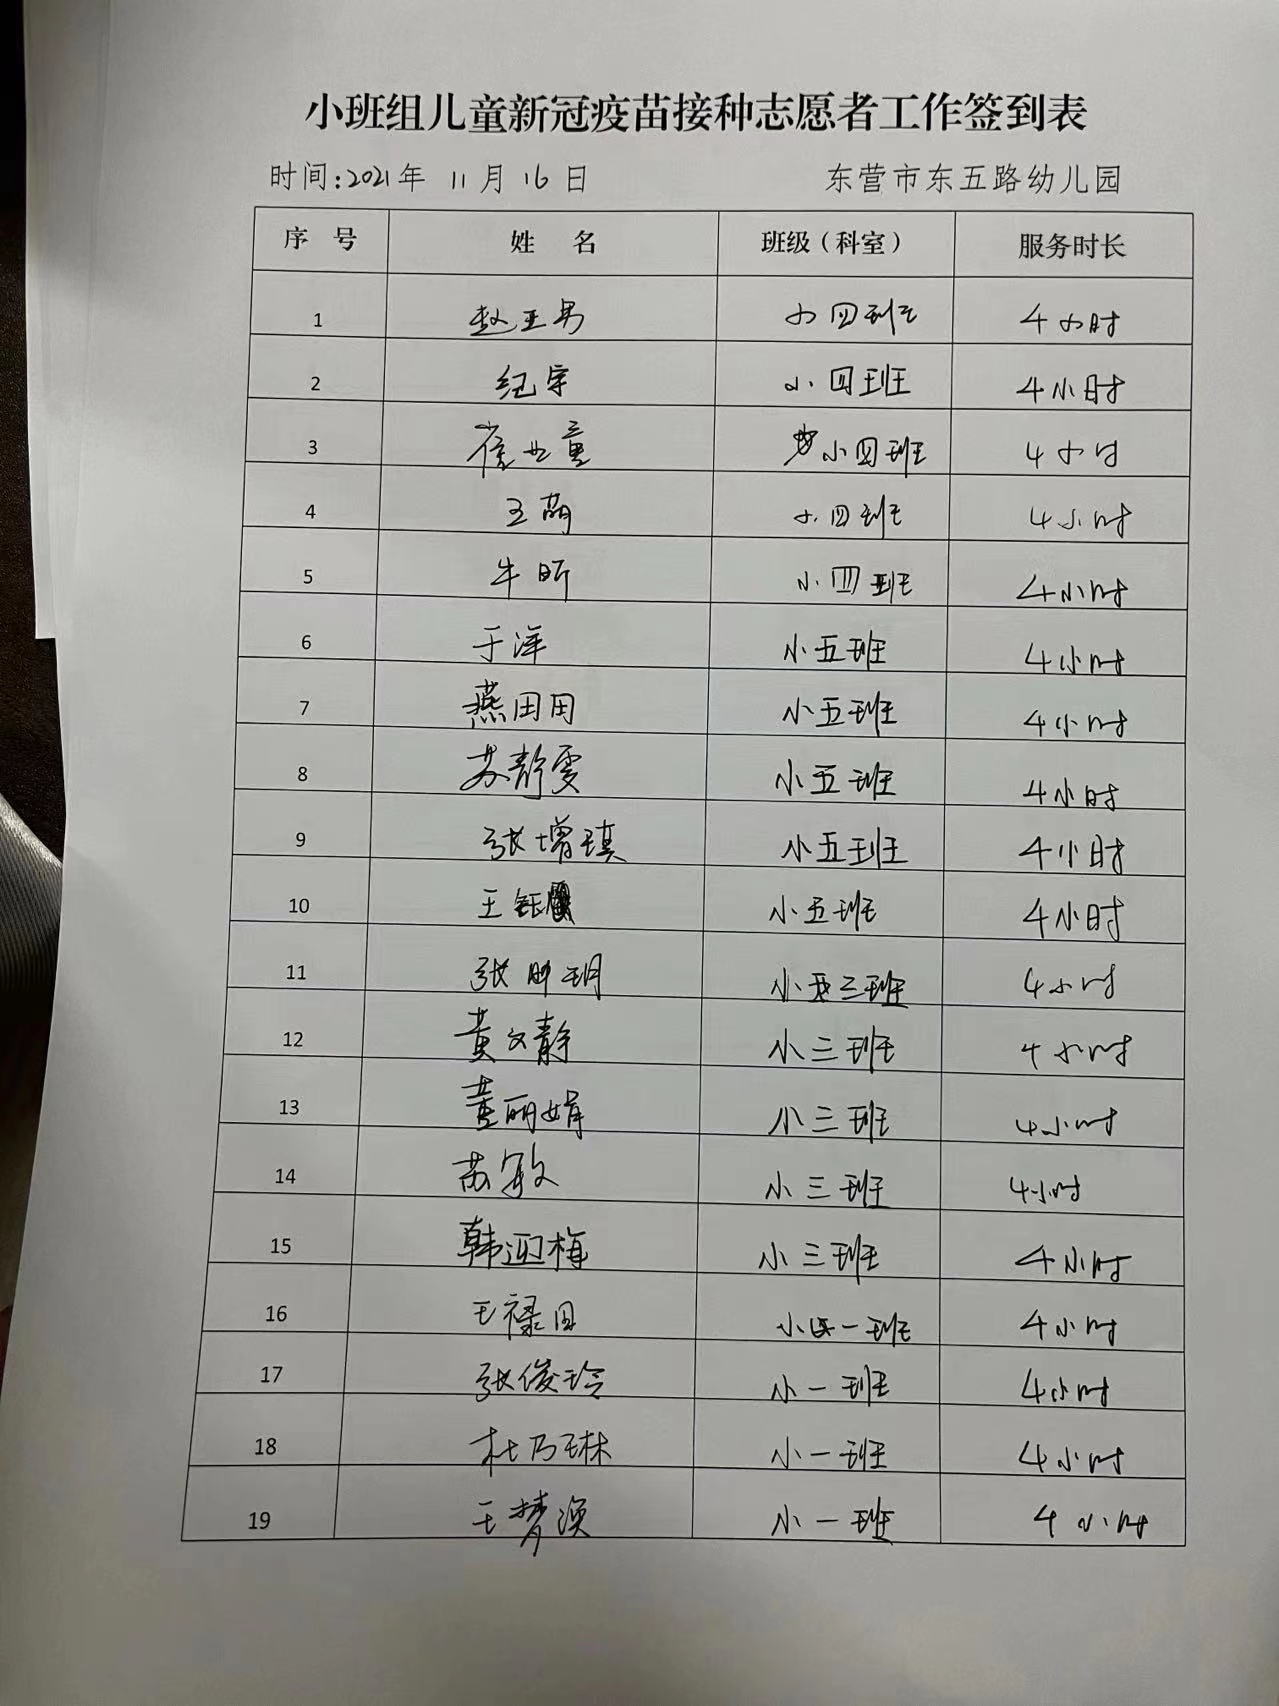 小班组儿童新冠疫苗接种志愿者工作签到表
时间:2021年 11月 16日 东营市东五路幼儿园
序 号 姓 名 班级(科室) 服务时长
1 赵王男 小四班 4小时
2 纪宇 小四班 4小时
3 崔世童 小四班 4小时
4 王萌 小四班 4小时
5 牛昕 小四班 4小时
6 于洋 小五班 4小时
7 燕田田 小五班 4小时
8 苏静雯 小五班 4小时
9 张增琪 小五班 4小时
10 王钰 小五班 4小时
11 张 玥 小三班 4小时
12 黄文静 小三班 4小时
13 董丽娟 小三班 4小时
14 苏敏 小三班 4小时
15 韩迎梅 小三班 4小时
16 王禄田 小一班 4小时
17 张俊玲 小一班 4小时
18 杜乃琳 小一班 4小时
19 王梦涣 小一班 4小时